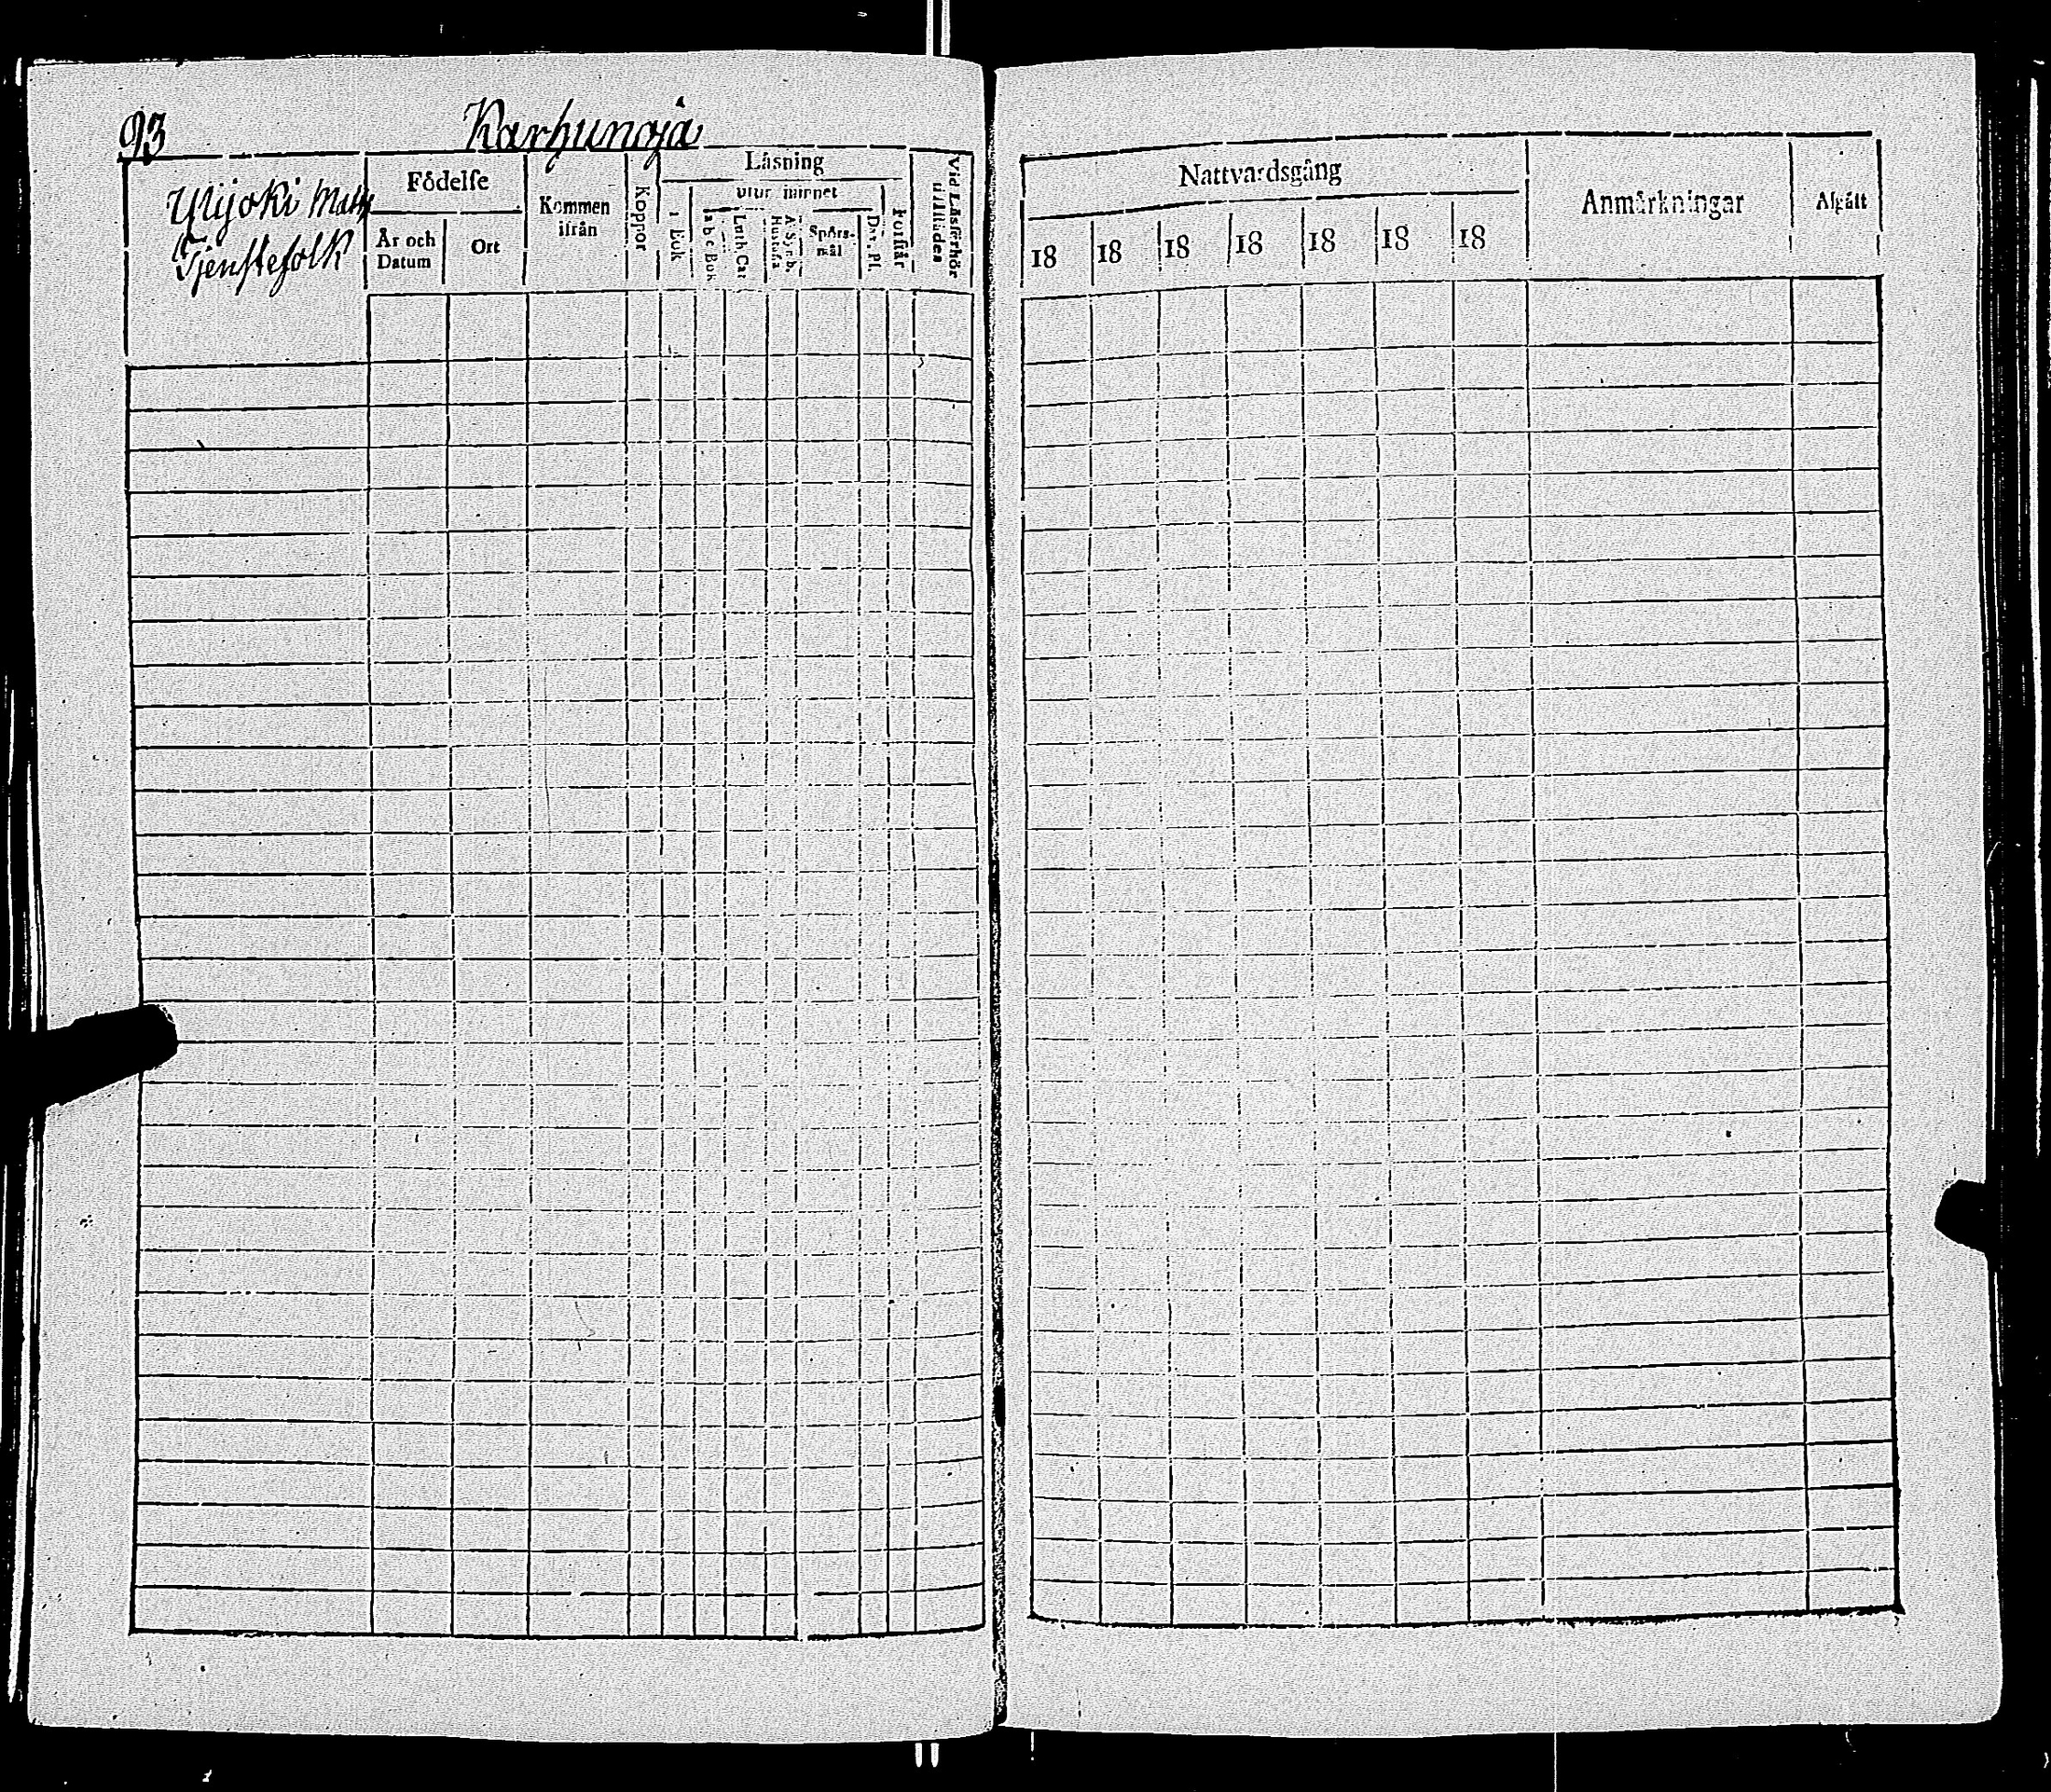 93
Karhunoja
Ylijoki Matts
Tjenstefolk
Födelse
År och
Datum
Ort
Kommen
ifrån
Koppor
Läsning
i Bok
utur minnet
a b c Bok
Luth. Cat
A. Symb.
Hustafla
Spörs-
mål
Dav. Ps.
Förstår
Vid Läsförhör
tillstädes
Nattvardsgång
18 18 18 18 18 18 18
Anmärkningar
Afgått